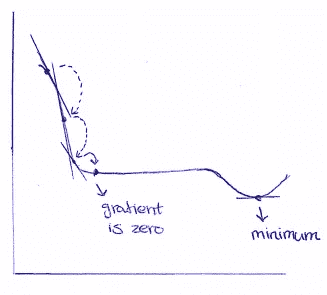 gratient
is zero
minimum